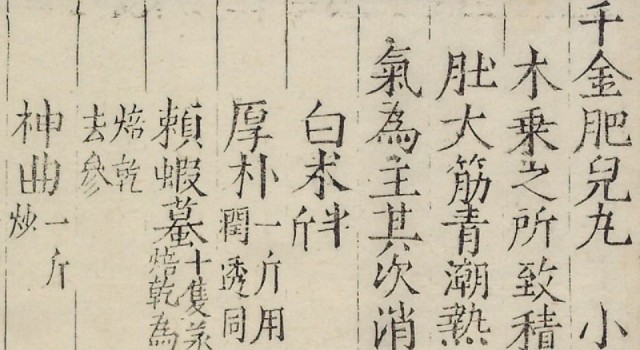 千金肥兒丸 小
木乗之所致積
肚大筋青潮熱
氣為主其次消
白术半斤
厚朴一斤用
潤透同
賴蝦蟇十隻
焙乾為
焙乾
去參
神曲一斤
炒